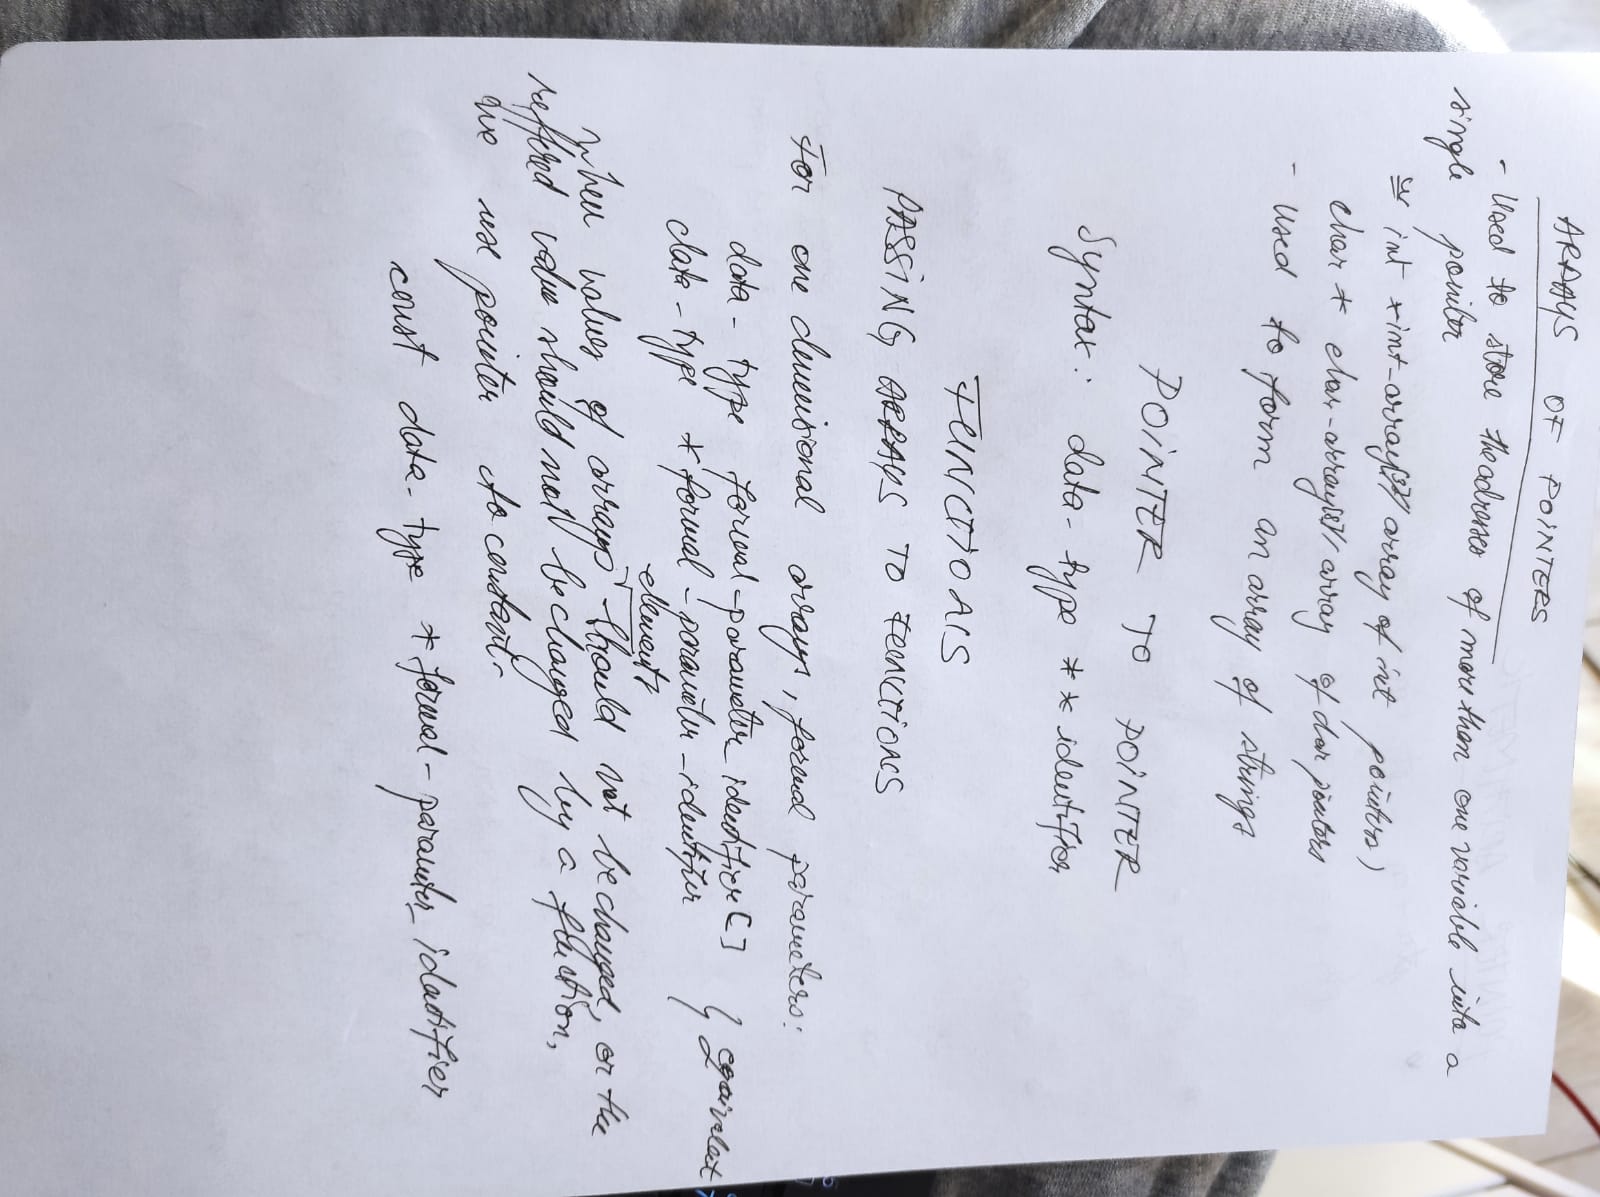 ARRAYS OF POINTERS
- Used to store the adresses of more than one variable into a
single pointer
int *int-array[3]// array of int pointers)
char * char-array[8]// array of char pointers
- Used to form an array of strings
POINTER TO POINTER
Syntax: data-type ** identifier
FUNCTIONS
PASSING ARRAYS TO FUNCTIONS
For one dimensional arrays, formal parameters:
data-type formal-parameter_identifier[] } equivalent
data-type *formal-parameter-identifier
elements
when values of arrays should not be changed, or the
reffered value should not be changed by a function,
we use pointer to constant.
const data-type *formal-parameter_identifier